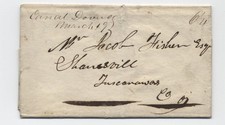 Canal Dover
March 19
Mr Jacob Fisher Esq
Shanesvill
Tuscarawas
Co